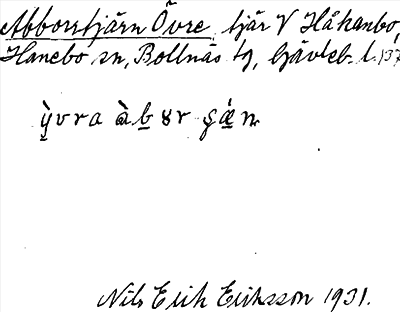 Abborrtjärn Övre, tjär V Håkanbo,
Hanebo sn, Bollnäs tg, Gävleb. l. 137
y̠̆vra àb̠ɤr ʂǽn
Nils Erik Eriksson 1931.